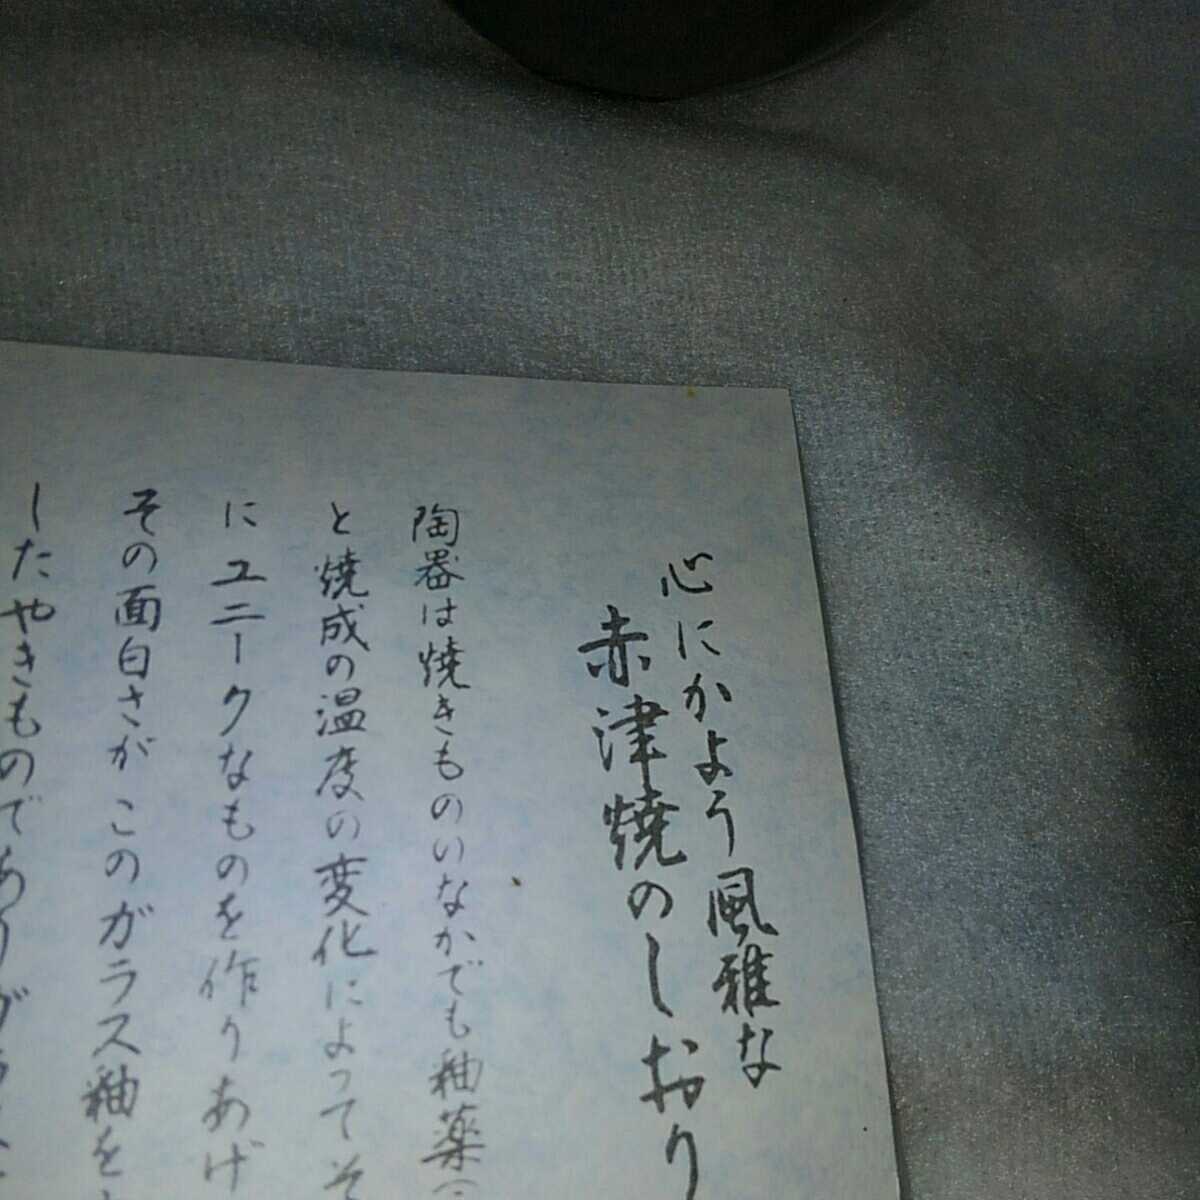 心にかよう風雅な
赤津焼のしおり
陶器は焼きもののいなかでも釉薬
と焼成の温度の変化によってそ
にユニークなものを作りあげ
その面白さがこのガラス釉を
したやきものでありガラ